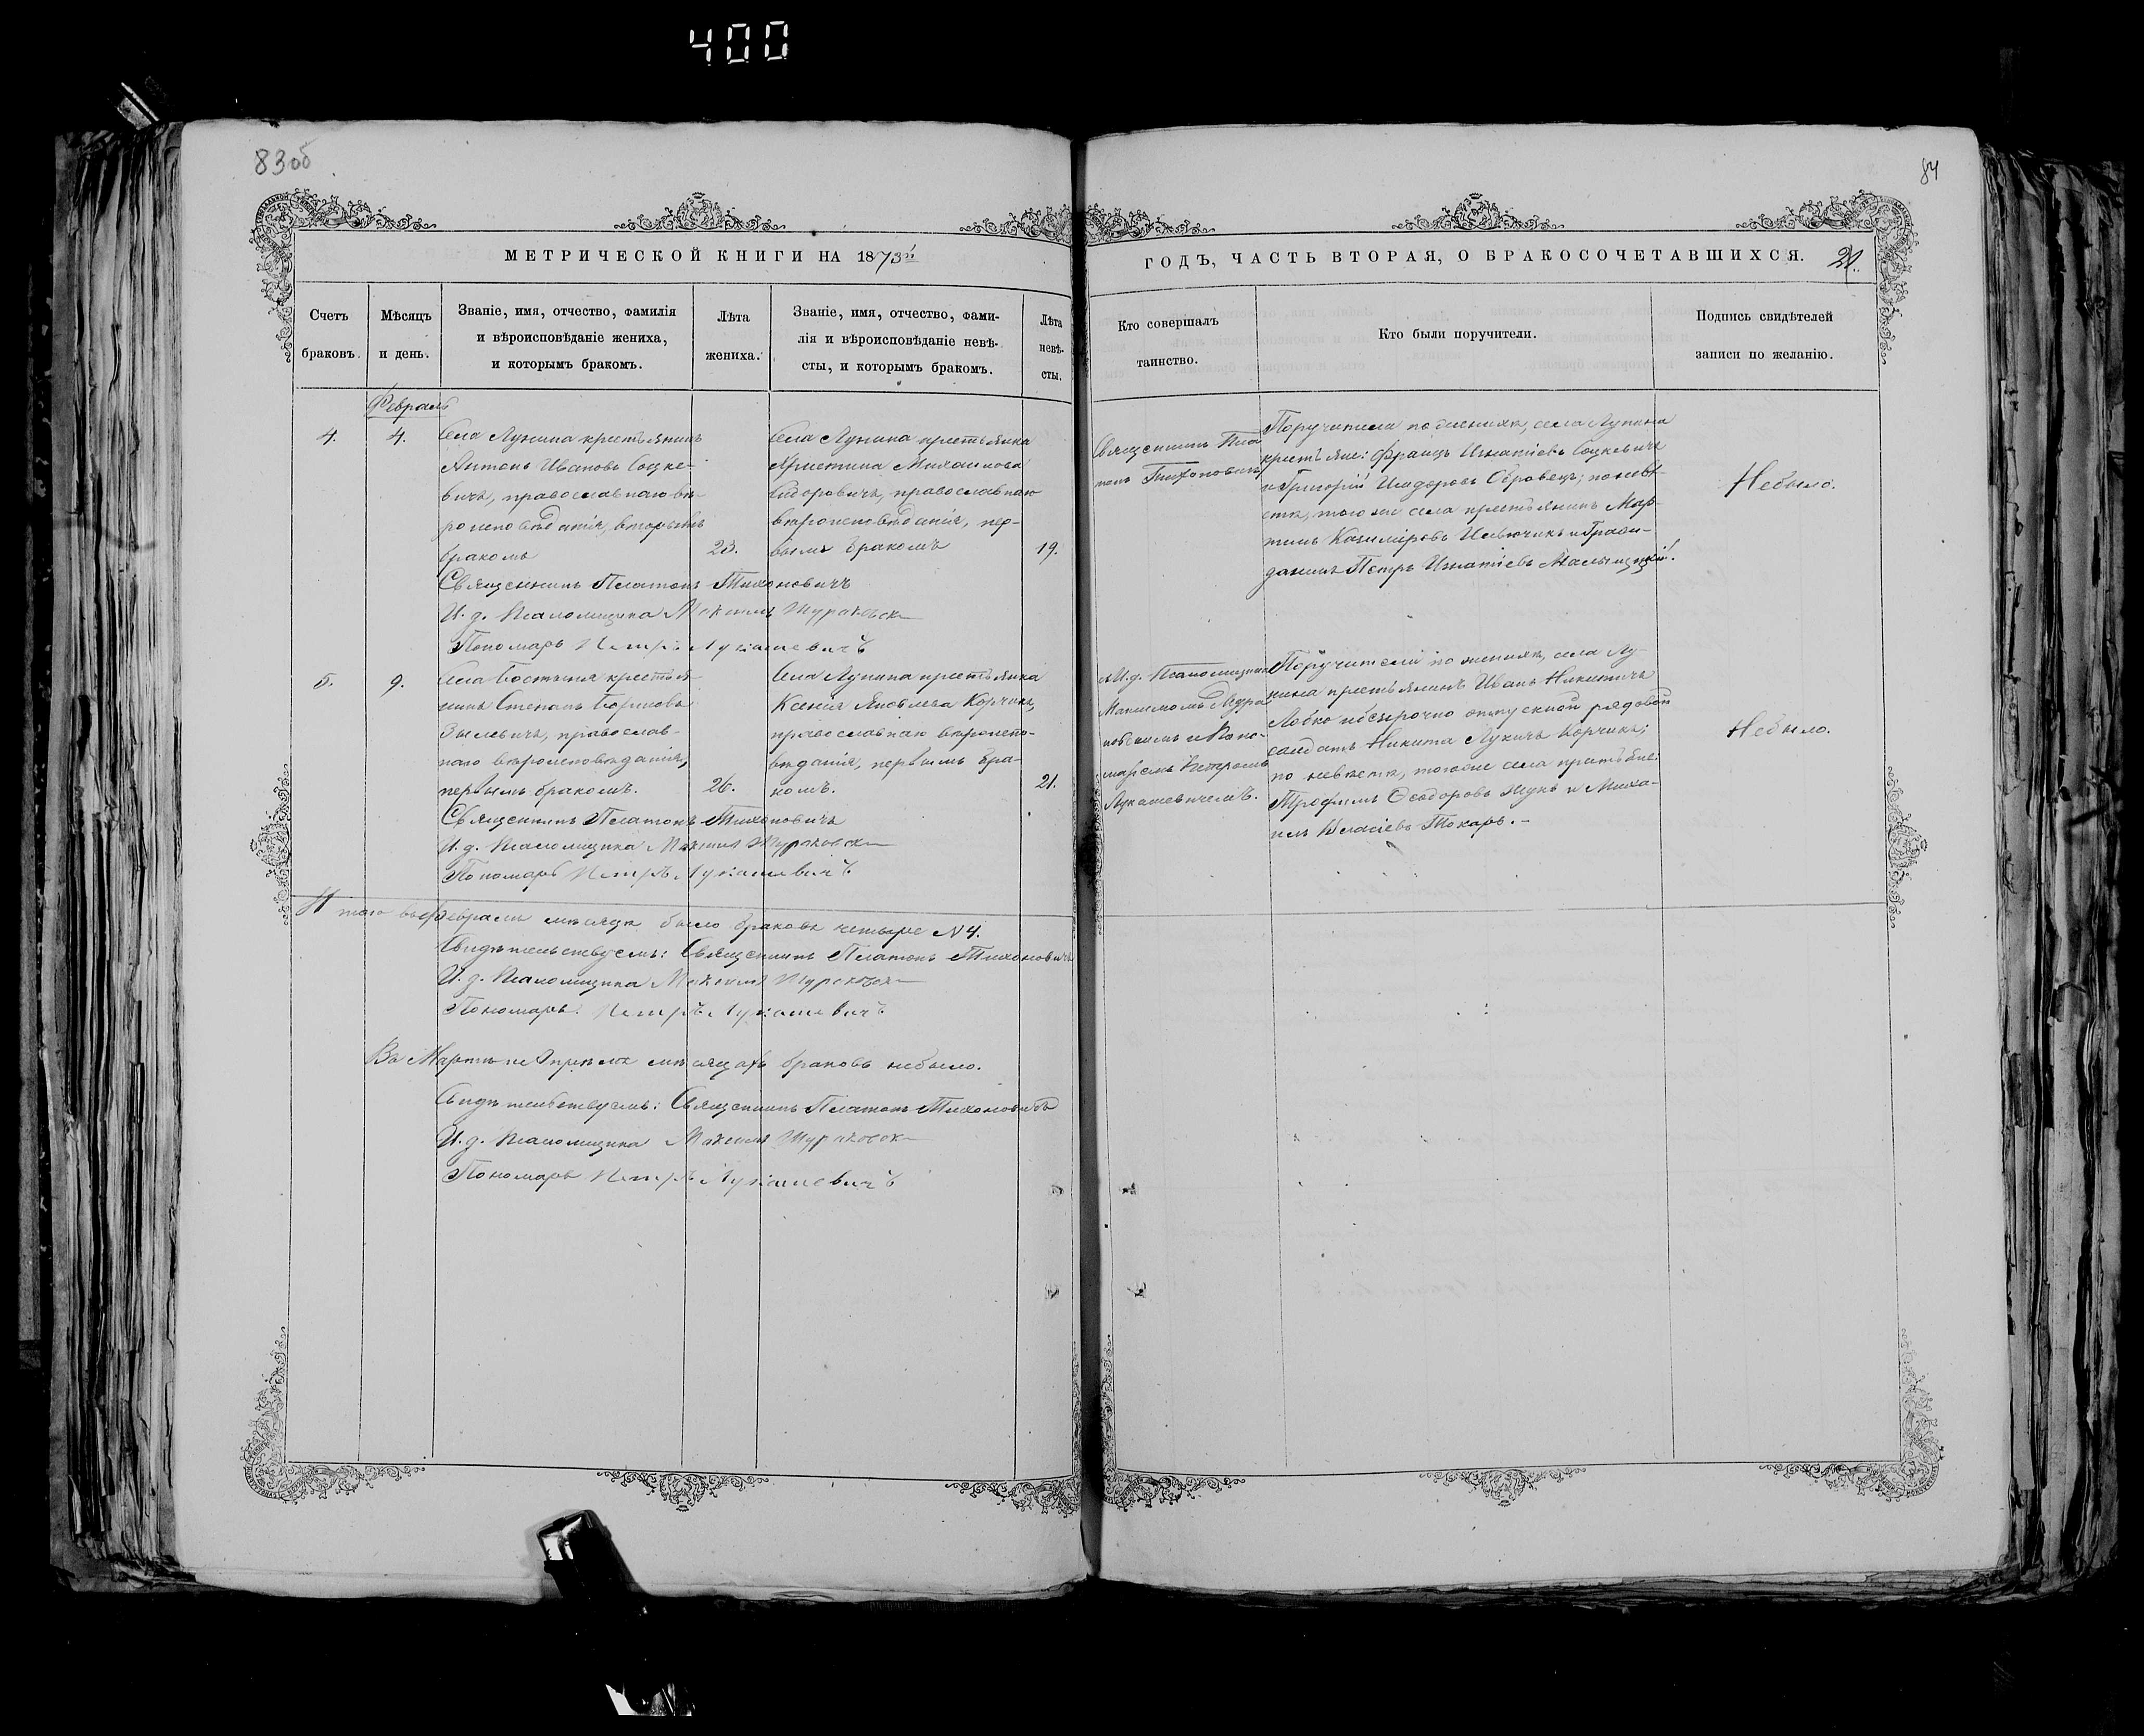 400
83об
84
МЕТРИЧЕСКОЙ КНИГИ НА 1873й
ГОДЪ, ЧАСТЬ ВТОРАЯ, О БРАКОСОЧЕТАВШИХСЯ.
21.
Счетъ
браковъ.
Мѣсяцъ
и день.
Званіе, имя, отчество, фамилія
и вѣроисповѣданіе жениха,
и которымъ бракомъ.
Лѣта
жениха.
Званіе, имя, отчество, фами-
лія и вѣроисповѣданіе невѣ-
сты, и которымъ бракомъ.
Лѣта
невѣ-
сты.
Кто совершалъ
таинство.
Кто были поручители.
Подпись свидѣтелей
записи по желанію.
Февраль
4.
4.
Села Лунина крестьянинъ
Антонъ Ивановъ Соцке-
вичъ, православнаго вѣ-
роисповѣданія, вторымъ
бракомъ
23.
Села Лунина крестьянка
Христина Михаилова
Сидоровичъ, православнаго
вѣроисповѣданія, пер-
вымъ бракомъ
19.
Священникъ Пла
тонъ Тихоновичъ
Поручители по женихѣ, села Лунина
крестьяне: Францъ Игнатіевъ Соцкевичъ
и Григорій Исидоровъ; по невѣ-
стѣ, того же села крестьянинъ Мар-
тинъ Казиміровъ и Граж-
данинъ Петръ Игнатіевъ
Небыло.
Священникъ Платонъ Тихоновичъ
И. д. Псаломщика Максимъ
Пономарь Петръ Лукашевичъ
5.
9.
Села Бостыня крестья-
нинъ Степанъ
православ-
наго вѣроисповѣданія,
первымъ бракомъ.
26.
Села Лунина крестьянка
Ксенія Яковлева Корчикъ,
православнаго вѣроиспо-
вѣданія, первымъ бра-
комъ.
21.
И. д. Псаломщика
Максимомъ
и Поно-
маремъ Петромъ
Лукашевичемъ.
Поручители по женихѣ, села Лу-
нина крестьянинъ Иванъ Никитичъ
Лобко и безсрочно отпускной рядовой
солдатъ Никита Лукичъ Корчикъ;
по невѣстѣ, тогоже села крестьяне:
Трофимъ Ѳеодоровъ и Миха-
илъ Власіевъ Токарь. –
Небыло.
Священникъ Платонъ Тихоновичъ
И. д. Псаломщика Максимъ
Пономарь Петръ Лукашевичъ
Итого въ Февралѣ мѣсяцѣ было браковъ четыре N 4.
Свидѣтельствуемъ: Священникъ Платонъ Тихоновичъ
И. д. Псаломщика Максимъ
Пономарь: Петръ Лукашевичъ
Въ Мартѣ и Апрѣлѣ мѣсяцахъ браковъ небыло.
Свидѣтельствуемъ: Священникъ Платонъ Тихоновичъ
И. д. Псаломщика Максимъ
Пономарь Петръ Лукашевичъ